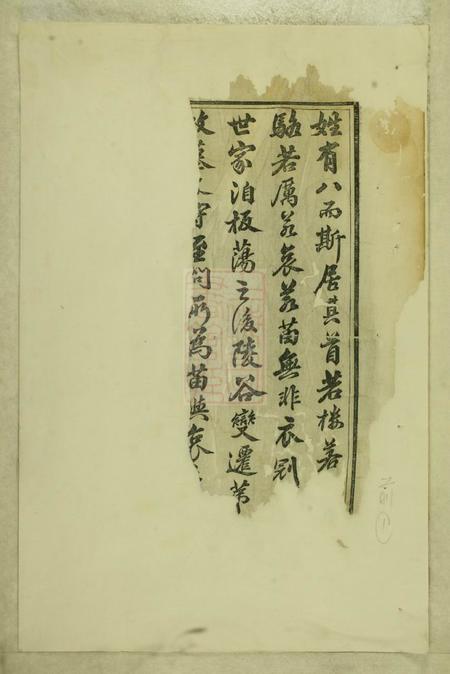 姓有八而斯居其首若楼若
駱若厲若哀若苗無非衣冠
世家洎板蕩之後陵谷變遷第
故 至问所為苗與哀
前
①